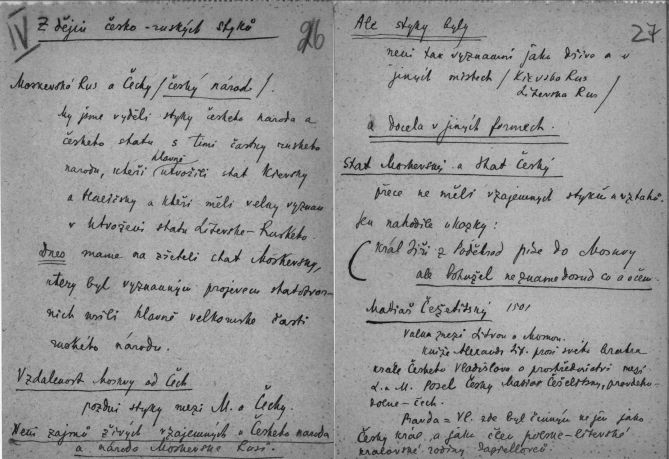 IV Z dějin česko-ruských styků 26
Moskevská Rus a Čechy / český národ /.
My jsme vyděli styky českeho naroda a
českeho statu s timi častmy ruskeho
narodu, kteři hlavně utvořili stat Kievsky
a Haličsky a kteři měli velky vyznam
v utvořeni statu Litevsko-Ruskeho.
Dnes mame na zřeteli stat Moskevsky,
ktery byl vyznamnym projevem statotvor-
nich usili hlavně velkoruske časti
ruskeho narodu.
Vzdalenost Moskvy od Čech
pozdni styky mezi M. a Čechy.
Neni zajmů živych vzajemnych u Českeho naroda
a naroda Moskevske Rusi.
Ale styky byly 27
neni tak vyznamni jako dřive a v
jinych mistech / Kievska Rus
Litevska Rus /
a docela v jinych formech.
Stat Moskevsky a Stat Český
přece ne měli vzajemnych styků a vztahů.
Jen nahodile ukazky:
Kral Jiři z Poděbrad piše do Moskvy
ale bohužel ne zname dosud co a očem.
Matiaš Čežetitsný 1501
Valka mezi Litvou a Moskvou.
kniže Alexandr Lit. prosi svého bratra
krale Českeho Vladislava o prostřednictvi mezi
L. a M. Posel Česky Matias Češelitsny, pravdepo-
dobne - čech.
Pravda = Vl. zde byl činnym ne jen jako
Český kral a jako člen polsko-litevské
kralovské rodiny Jagellovců